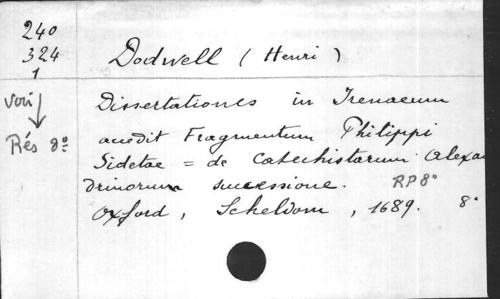 240
324
1
Dodwell ( Henri )
voir
Rés 8º
Dissertationes in Irenaeum
accedit Fragmentum Philippi
Sidetae = de Catechistarum Alexan
drinorum successione. RP 8º
Oxford, Scheldom, 1689. 8º